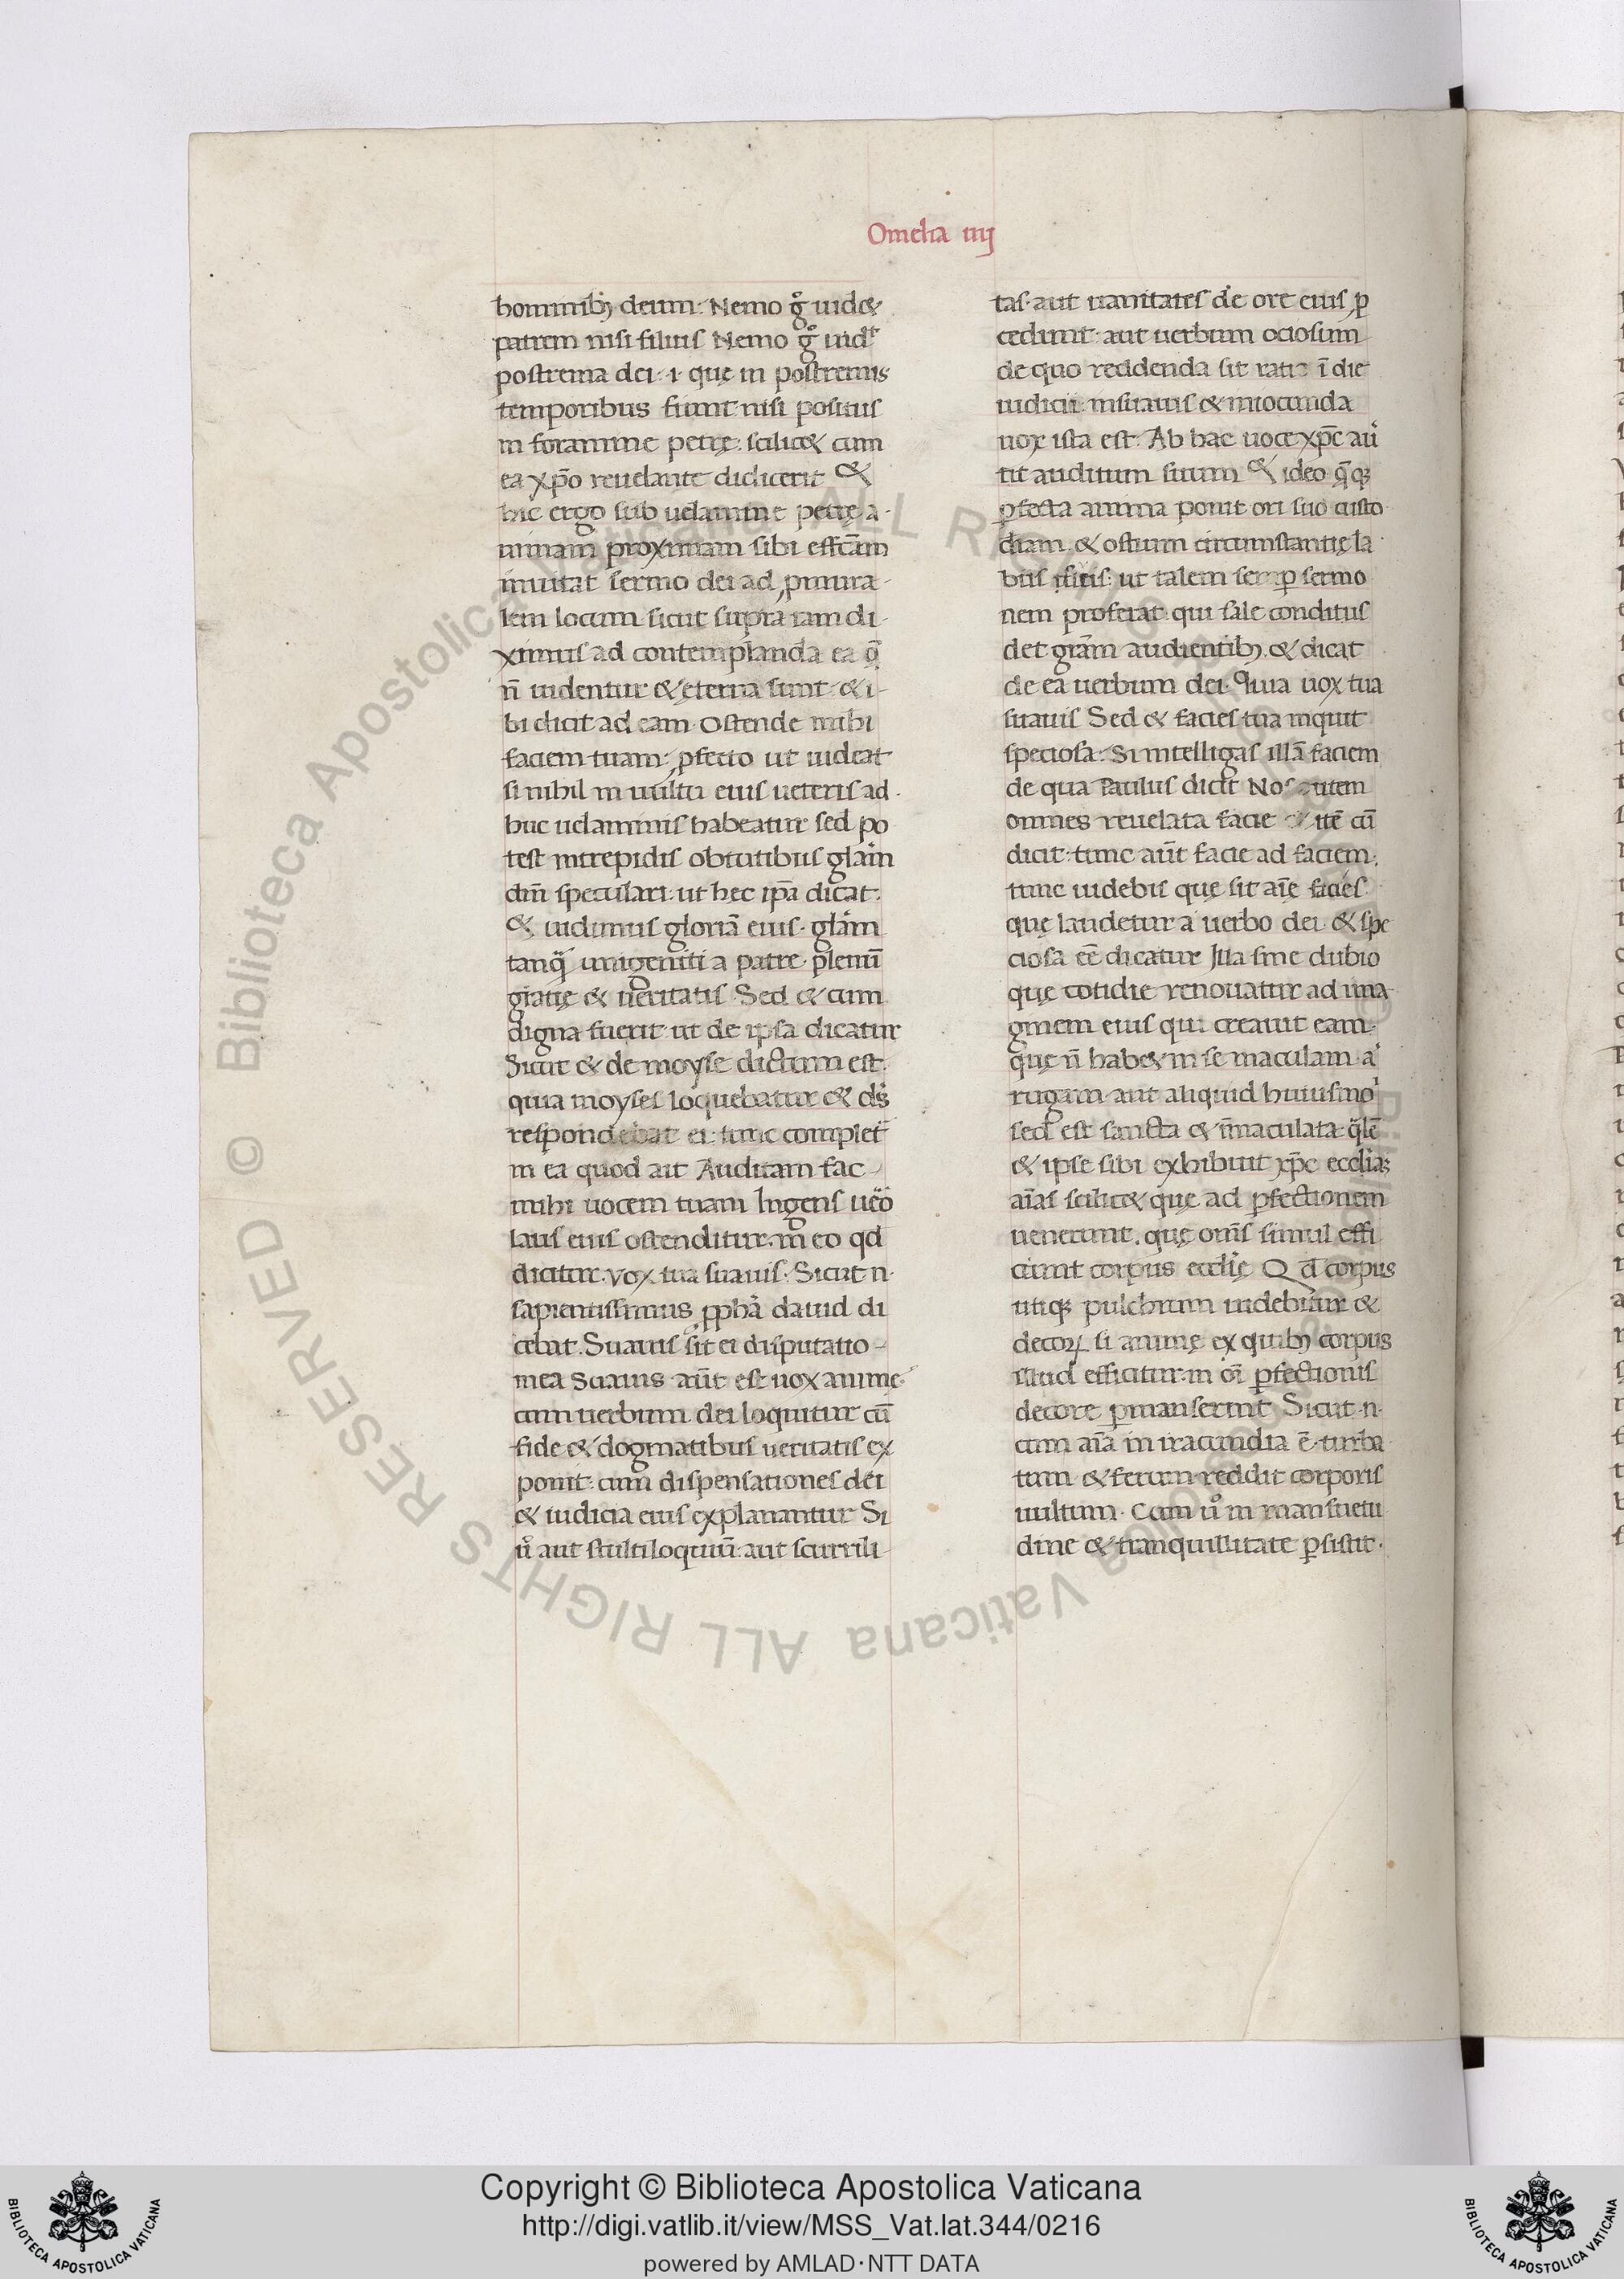 Omelia iiij
hominibꝫ deum. Nemo gͦ uidet
patrem nisi filius Nemo gͦ uidet
postrema dei .i. quę in postremis
temporibus fiunt nisi positus
in foramine petrę. scilicet cum
ea xp̄o reuelante didicerit Et
hic ergo sub uelamine petrę a-
nimam proximam sibi effc̄am
inuitat sermo dei ad ꝓmura-
lem locum sicut supra iam di-
ximus ad contemplanda ea q̄
n̄ uidentur & eterna sunt. & i-
bi dicit ad eam. Ostende mihi
faciem tuam. ꝓfecto ut uideat
si nihil in uultu eius ueteris ad-
huc uelaminis habeatur sed po
test intrepidis obtutibus gl̄am
dn̄i speculari. ut hec ip̄a dicat.
& uidimus gloriā eius. gl̄am
tanq̄ unigeniti a patre. plenū
gratię & ueritatis. Sed & cum
digna fuerit ut de ipsa dicatur
Sicut & de moyse dictum est.
quia moyses loquebatur & ds̄
respondebat ei. tunc complet̄
in ea quod ait Auditam fac
mihi uocem tuam Ingens uēo
laus eius ostenditur. in eo qd
dicitur. vox tua suauis. Sicut n.
sapientissimus ꝓpha dauid di
cebat. Suauis sit ei disputatio-
mea Suauis aūt est uox animę.
cum uerbum dei loquitur cū
fide & dogmatibus ueritatis ex
ponit. cum dispensationes dei
& iudicia eius explanantur Si
uͦ aut stultiloquiū. aut scurrili
tas. aut uanitates de ore eius ꝓ
cedunt. aut uerbum ociosum
de quo reddenda sit ratio ī die
iudicii. insuauis & iniocunda
uox ista est. Ab hac uoce xp̄c au
tit auditum suum Et ideo q̄qꝫ
ꝑfecta anima ponit ori suo custo
diam. & ostium circumstantię la
biis suis. ut talem semꝑ sermo
nem proferat. qui sale conditus
det grām audientibꝫ. & dicat
de ea uerbum dei. Quia uox tua
suauis Sed & facies tua inquit
speciosa. Si intelligas illā faciem
de qua Paulus dicit Nos autem
omnes reuelata facie & itē cū
dicit. tunc aūt facie ad faciem.
tunc uidebis quę sit aīę facies.
quę laudetur a uerbo dei. & spe
ciosa eē dicatur Illa sine dubio
quę cotidie renouatur ad ima-
ginem eius qui creauit eam.
quę n̄ habet in se maculam a
rugam. aut aliquid huiusmo
sed est sancta & īmaculata. q̄lē
& ipse sibi exhibuit xp̄c eccl̄ia;
aīas scilicet quę ad ꝑfectionem
uenerunt. quę om̄s simul effi
ciunt corpus eccl̄ię Qd̄ corpus
utiqꝫ pulchrum uidebitur &
decoꝝ si animę ex quibꝫ corpus
istud efficitur. in oī ꝑfectionis
decore ꝑmanserint Sicut n.
cum aīa in iracundia ē. turba
tum & ferum reddit corporis
uultum. Cum uͦ in mansuetu
dine & tranquillitate ꝑsistit.
Copyright © Biblioteca Apostolica Vaticana
http://digi.vatlib.it/view/MSS_Vat.lat.344/0216
powered by AMLAD・NTT DATA